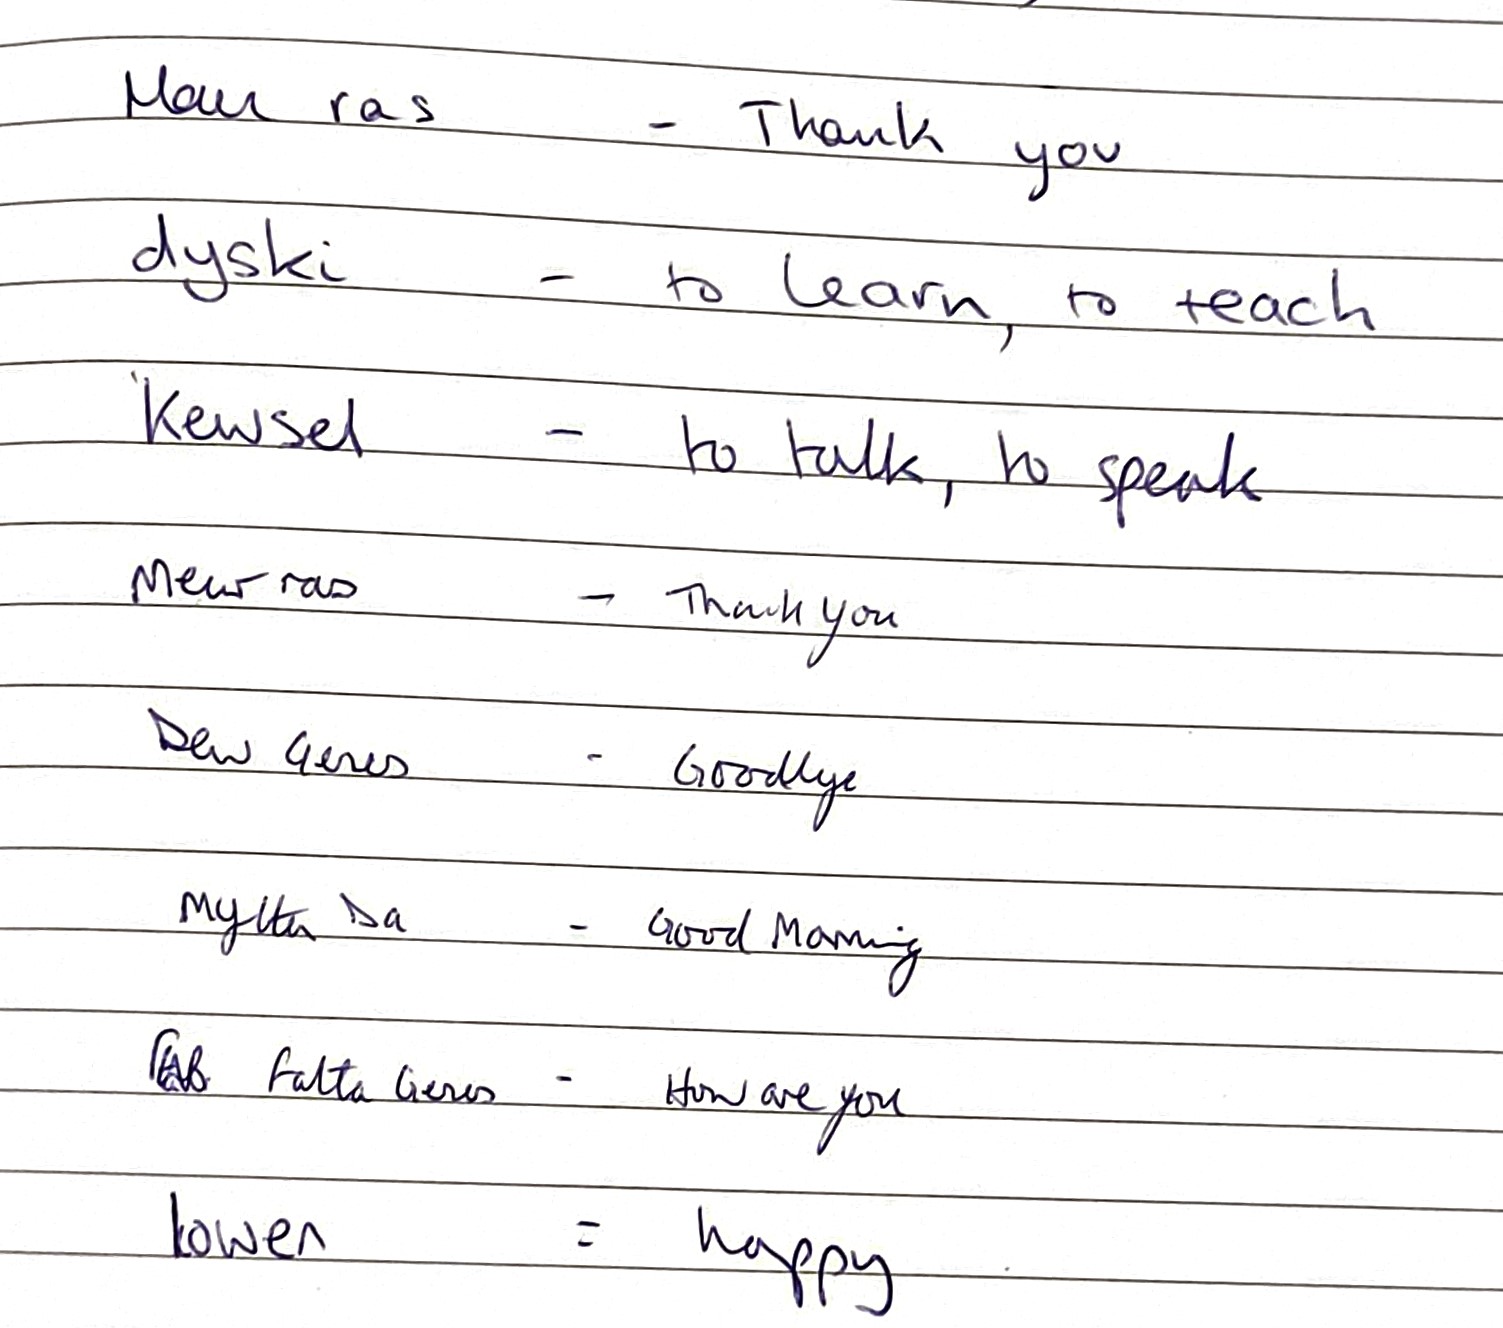 Meur ras - Thank you
dyski - to learn, to teach
Kewsel - to talk, to speak
Meur ras - Thank you
Dew Genes - Goodbye
Mytta Da - Good Morning
Fatta Genes - How are you
lowen = happy